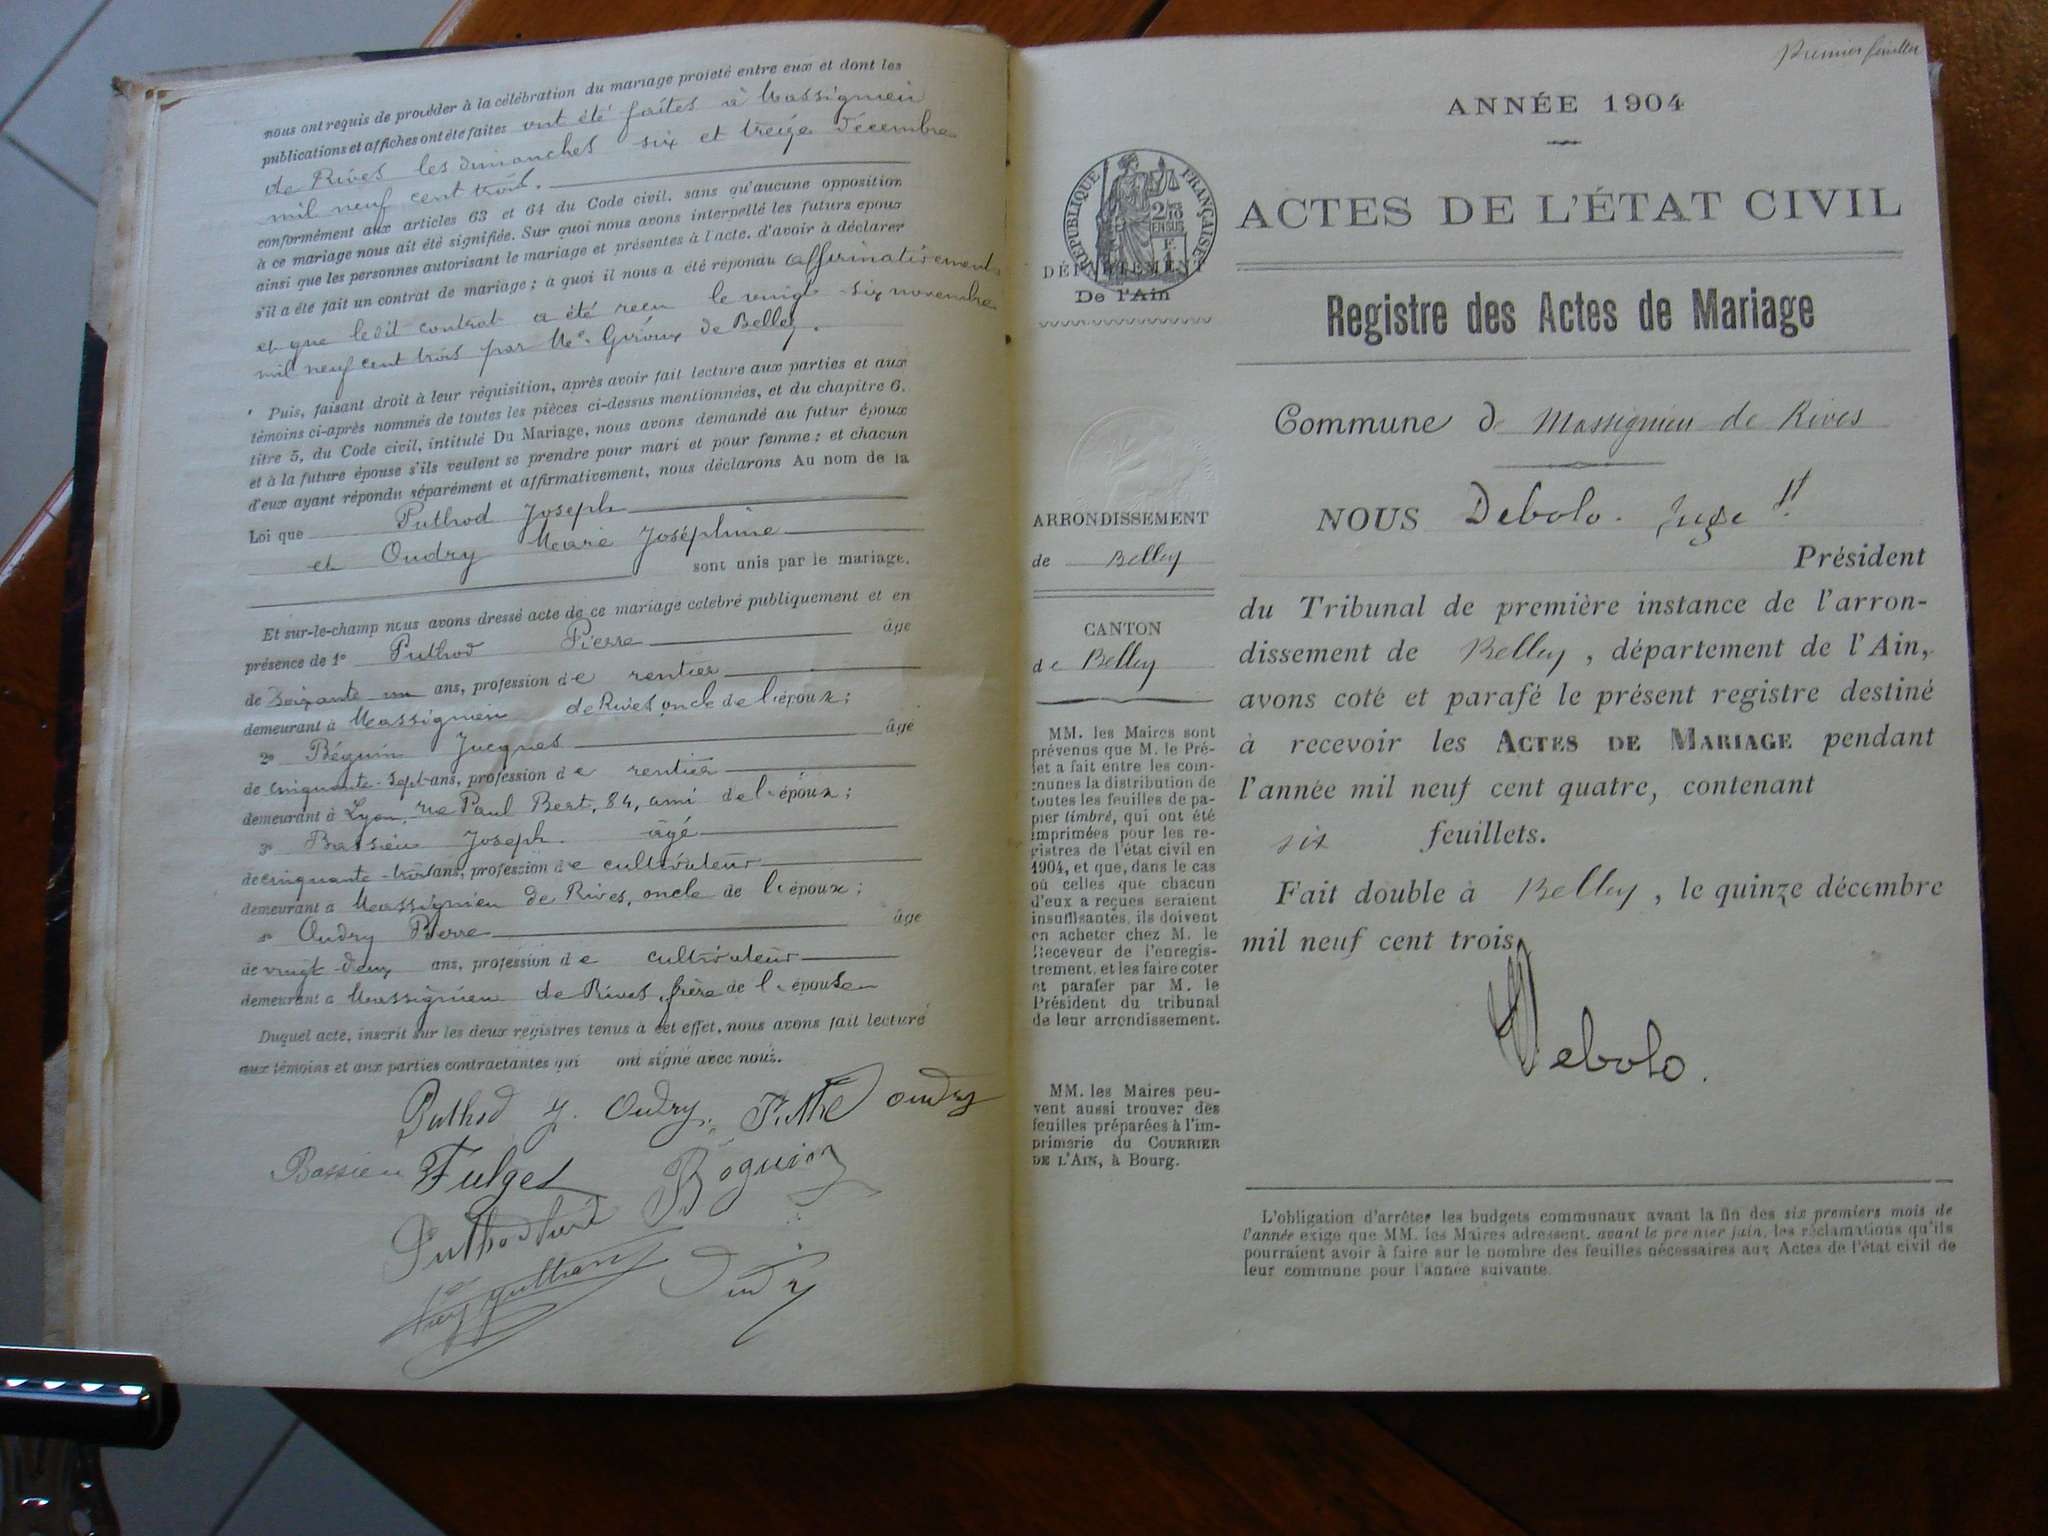 nous ont requis de procéder à la célébration du mariage projeté entre eux et dont les
publications et affiches ont été faites ont été faites à Massignieu
de Rives les dimanches six et treize décembre
mil neuf cent trois.
conformément aux articles 63 et 64 du Code civil, sans qu'aucune opposition
à ce mariage nous ait été signifiée. Sur quoi nous avons interpellé les futurs époux
ainsi que les personnes autorisant le mariage et présentes à l'acte, d'avoir à déclarer
s'il a été fait un contrat de mariage ; à quoi il nous a été répondu affirmativement
et que ledit contrat a été reçu le vingt six novembre
mil neuf cent trois par Me Giroux de Belley.
Puis, faisant droit à leur réquisition, après avoir fait lecture aux parties et aux
témoins ci-après nommés de toutes les pièces ci-dessus mentionnées, et du chapitre 6,
titre 5, du Code civil, intitulé Du Mariage, nous avons demandé au futur époux
et à la future épouse s'ils veulent se prendre pour mari et pour femme : et chacun
d'eux ayant répondu séparément et affirmativement, nous déclarons Au nom de la
Loi que Puthod Joseph
et Oudry Marie Joséphine
sont unis par le mariage.
Et sur-le-champ nous avons dressé acte de ce mariage célébré publiquement et en
présence de 1° Puthod Pierre âgé
de soixante un ans, profession de rentier
demeurant à Massignieu de Rives oncle de l'époux ;
2° Béguin Jacques âgé
de cinquante-sept ans, profession de rentier
demeurant à Lyon, rue Paul Bert, 84, ami de l'époux ;
3° Bassieu Joseph âgé
de cinquante-trois ans, profession de cultivateur
demeurant à Massignieu de Rives, oncle de l'époux ;
Oudry Pierre âgé
de vingt-deux ans, profession de cultivateur
demeurant à Massignieu de Rives, frère de l'épouse
Duquel acte, inscrit sur les deux registres tenus à cet effet, nous avons fait lecture
aux témoins et aux parties contractantes qui ont signé avec nous.
Puthod J. Oudry. Oudry
Bassieu Fulget
Oudry
Premier feuillet
ANNÉE 1904
ACTES DE L'ÉTAT CIVIL
Registre des Actes de Mariage
RÉPUBLIQUE FRANÇAISE
DÉPARTEMENT
De l'Ain
ARRONDISSEMENT
de Belley
CANTON
de Belley
MM. les Maires sont
prévenus que M. le Pré-
fet a fait entre les com-
munes la distribution de
toutes les feuilles de pa-
pier timbré, qui ont été
imprimées pour les re-
gistres de l'état civil en
1904, et que, dans le cas
où celles que chacun
d'eux a reçues seraient
insuffisantes, ils doivent
en acheter chez M. le
Receveur de l'enregis-
trement, et les faire coter
et parafer par M. le
Président du tribunal
de leur arrondissement.
MM. les Maires peu-
vent aussi trouver des
feuilles préparées à l'im-
primerie du COURRIER
DE L'AIN, à Bourg.
Commune de Massignieu de Rives
NOUS Debolo. Juge St
Président
du Tribunal de première instance de l'arron-
dissement de Belley, département de l'Ain,
avons coté et parafé le présent registre destiné
à recevoir les ACTES DE MARIAGE pendant
l'année mil neuf cent quatre, contenant
six feuillets.
Fait double à Belley, le quinze décembre
mil neuf cent trois.
Debolo.
L'obligation d'arrêter les budgets communaux avant la fin des six premiers mois de
l'année exige que MM. les Maires adressent, avant le premier juin, les réclamations qu'ils
pourraient avoir à faire sur le nombre des feuilles nécessaires aux Actes de l'état civil de
leur commune pour l'année suivante.